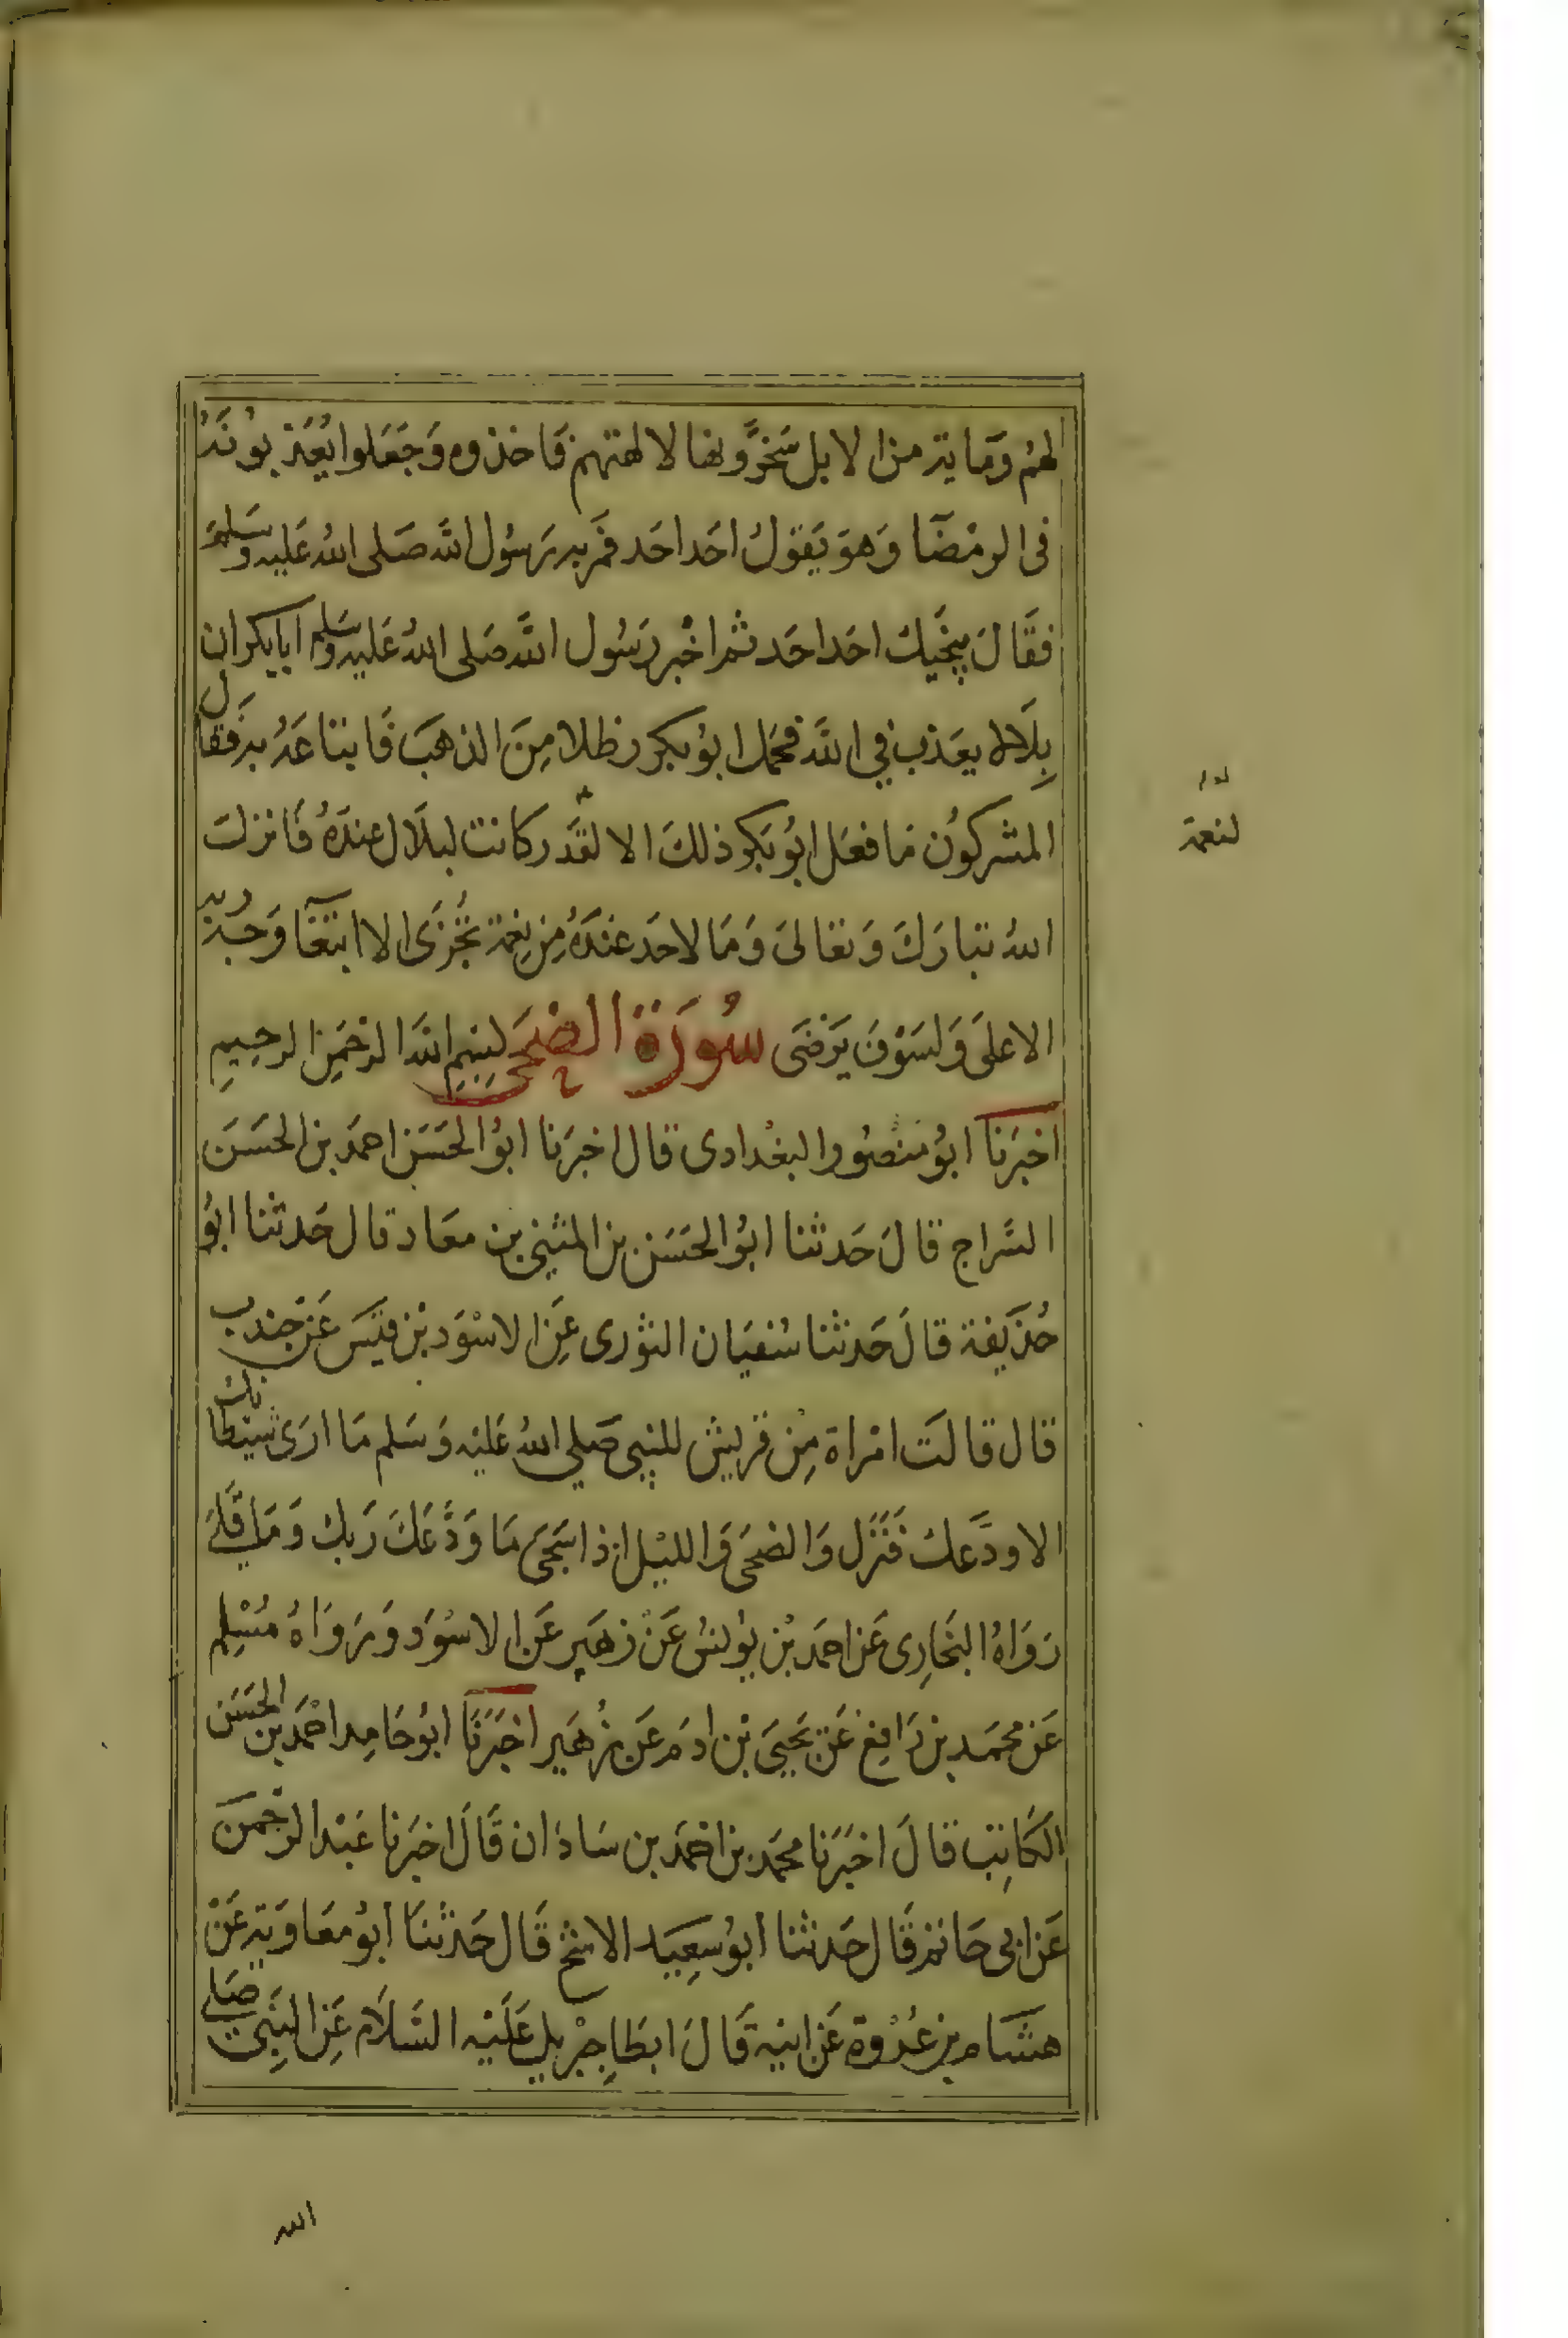 لهم ومایة من الابل ينحرونها لالهتهم فاخذوه وجعلوا يعذبونه
فی الرمضا وهو يقول احد احد فمر به رسول الله صلی الله عليه وسلم
فقال ينجيك احد احد ثم اخبر رسول الله صلی الله عليه وسلم ابابكر ان
بلالا يعذب في الله فحمل ابوبكر رطلا من الذهب فابتاعه به فقال
المشركون ما فعل ابوبكر ذلك الا لقد ركانت لبلال عنده فانزلت
الله تبارك وتعالى وما لاحد عنده من نعمة تجزى الا ابتغا وجه ربه
الاعلى ولسوف يرضى سورة الضحى بسم الله الرحمن الرحيم
اخبرنا ابو منصور البغدادى قال اخبرنا ابو الحسن احمد بن الحسن
السراج قال حدثنا ابو الحسن بن المثنى بن معاد قال حدثنا ابو
حذيفة قال حدثنا سفيان الثورى عن الاسود بن قيس عن جندب
قال قالت امراة من قريش للنبي صلي الله عليه وسلم ما ارى شيطانك
الا ودعك فنزل والضحى والليل اذا سجى ما ودعك ربك وما قلى
رواه البخارى عن احمد بن يونس عن زهير عن الاسود ورواه مسلم
عن محمد بن رافع عن يحيى بن ادم عن زهير اخبرنا ابو حامد احمد بن الحسن
الكاتب قال اخبرنا محمد بن احمد بن سادان قال اخبرنا عبد الرحمن
عن ابى حاتم قال حدثنا ابو سعيد الاشج قال حدثنا ابو معاوية عن
هشام بن عروة عن ابيه قال ابطا جبريل عليه السلام عن النبي صلى
لنعمة
الله